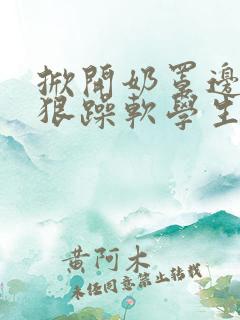 掀開奶罩邊
狠躁軟學生
黃阿木
未经同意禁止转载